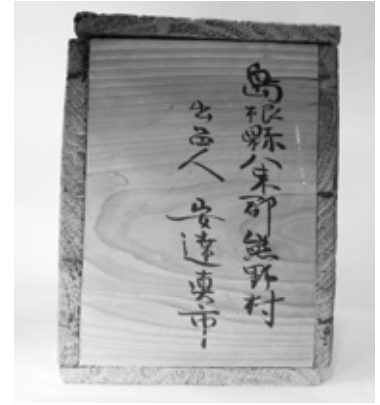 島根縣八束郡熊野村
出品人 安達真市